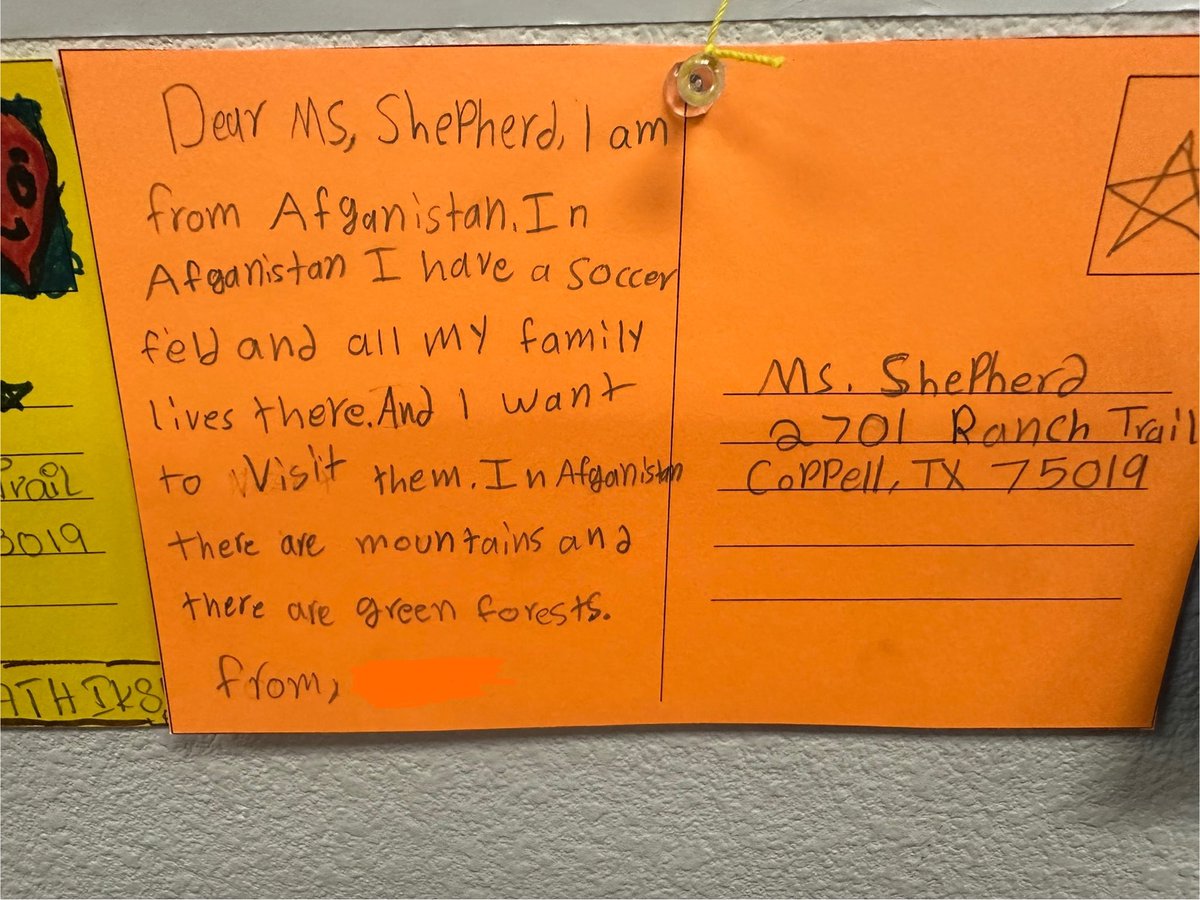 Dear Ms, Shepherd, I am
from Afganistan. In
Afganistan I have a soccer
feild and all my family
lives there. And I want
to Visit them. In Afganistan
there are mountains and
there are green forests.
from,
Ms. Shepherd
2701 Ranch Trail
Coppell, TX 75019
Trail
019